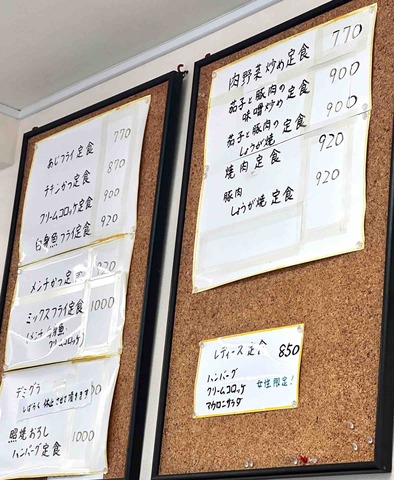 あじフライ定食 770
チキンかつ定食 870
クリームコロッケ定食 900
白身魚フライ定食 920
メンチかつ定食 920
ミックスフライ定食 1000
クリームコロッケ
デミグラ
しばらく休止させて頂きます
照焼おろし
ハンバーグ定食 1000
肉野菜炒め定食 770
茄子と豚肉の
味噌炒め定食 900
茄子と豚肉の
しょうが焼定食 900
焼肉定食 920
豚肉
しょうが焼定食 920
レディース定食 850
ハンバーグ
クリームコロッケ
マカロニサラダ
女性限定!